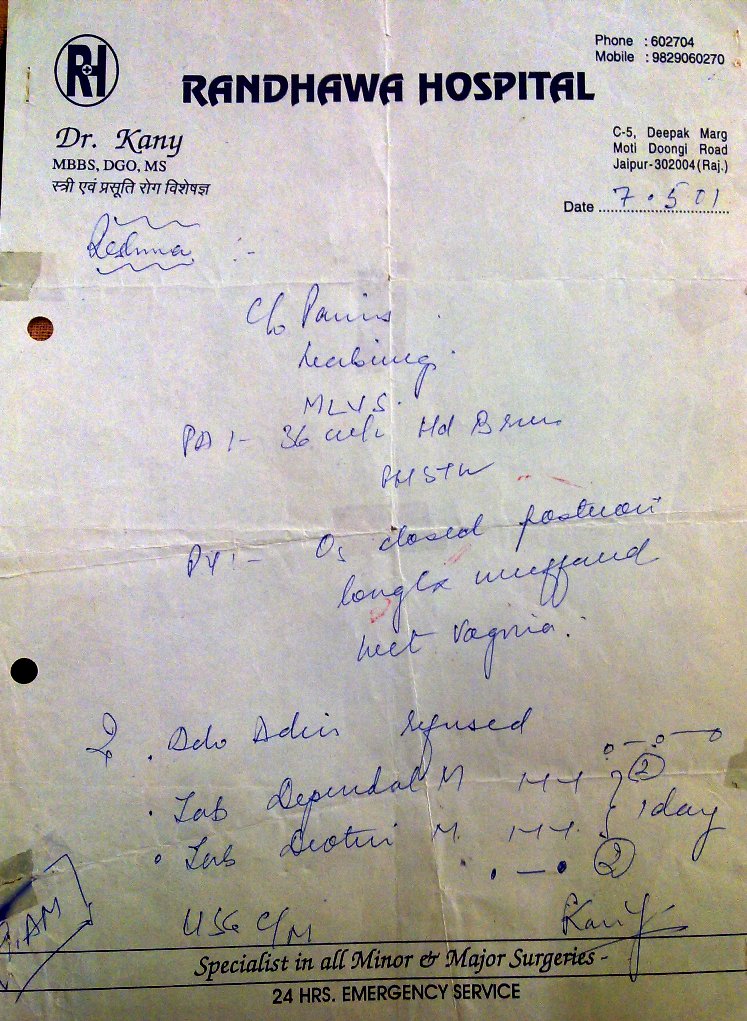 RH
Phone : 602704
Mobile : 9829060270
RANDHAWA HOSPITAL
Dr. Kany
MBBS, DGO, MS
स्त्री एवं प्रसूति रोग विशेषज्ञ
C-5, Deepak Marg
Moti Doongi Road
Jaipur-302004 (Raj.)
Date 7.5.01
Reshma :-
C/o Pains
Leaking
PA :- 36 wk Hd
PV :- Os closed posterior
long Cx uneffaced
wet vagina.
Adv Adm refused
Tab Dependal M 1-1-1 } ②
1 day
Tab M. 1-1-1. ②
USG C/M
Kany
AM
Specialist in all Minor & Major Surgeries -
24 HRS. EMERGENCY SERVICE